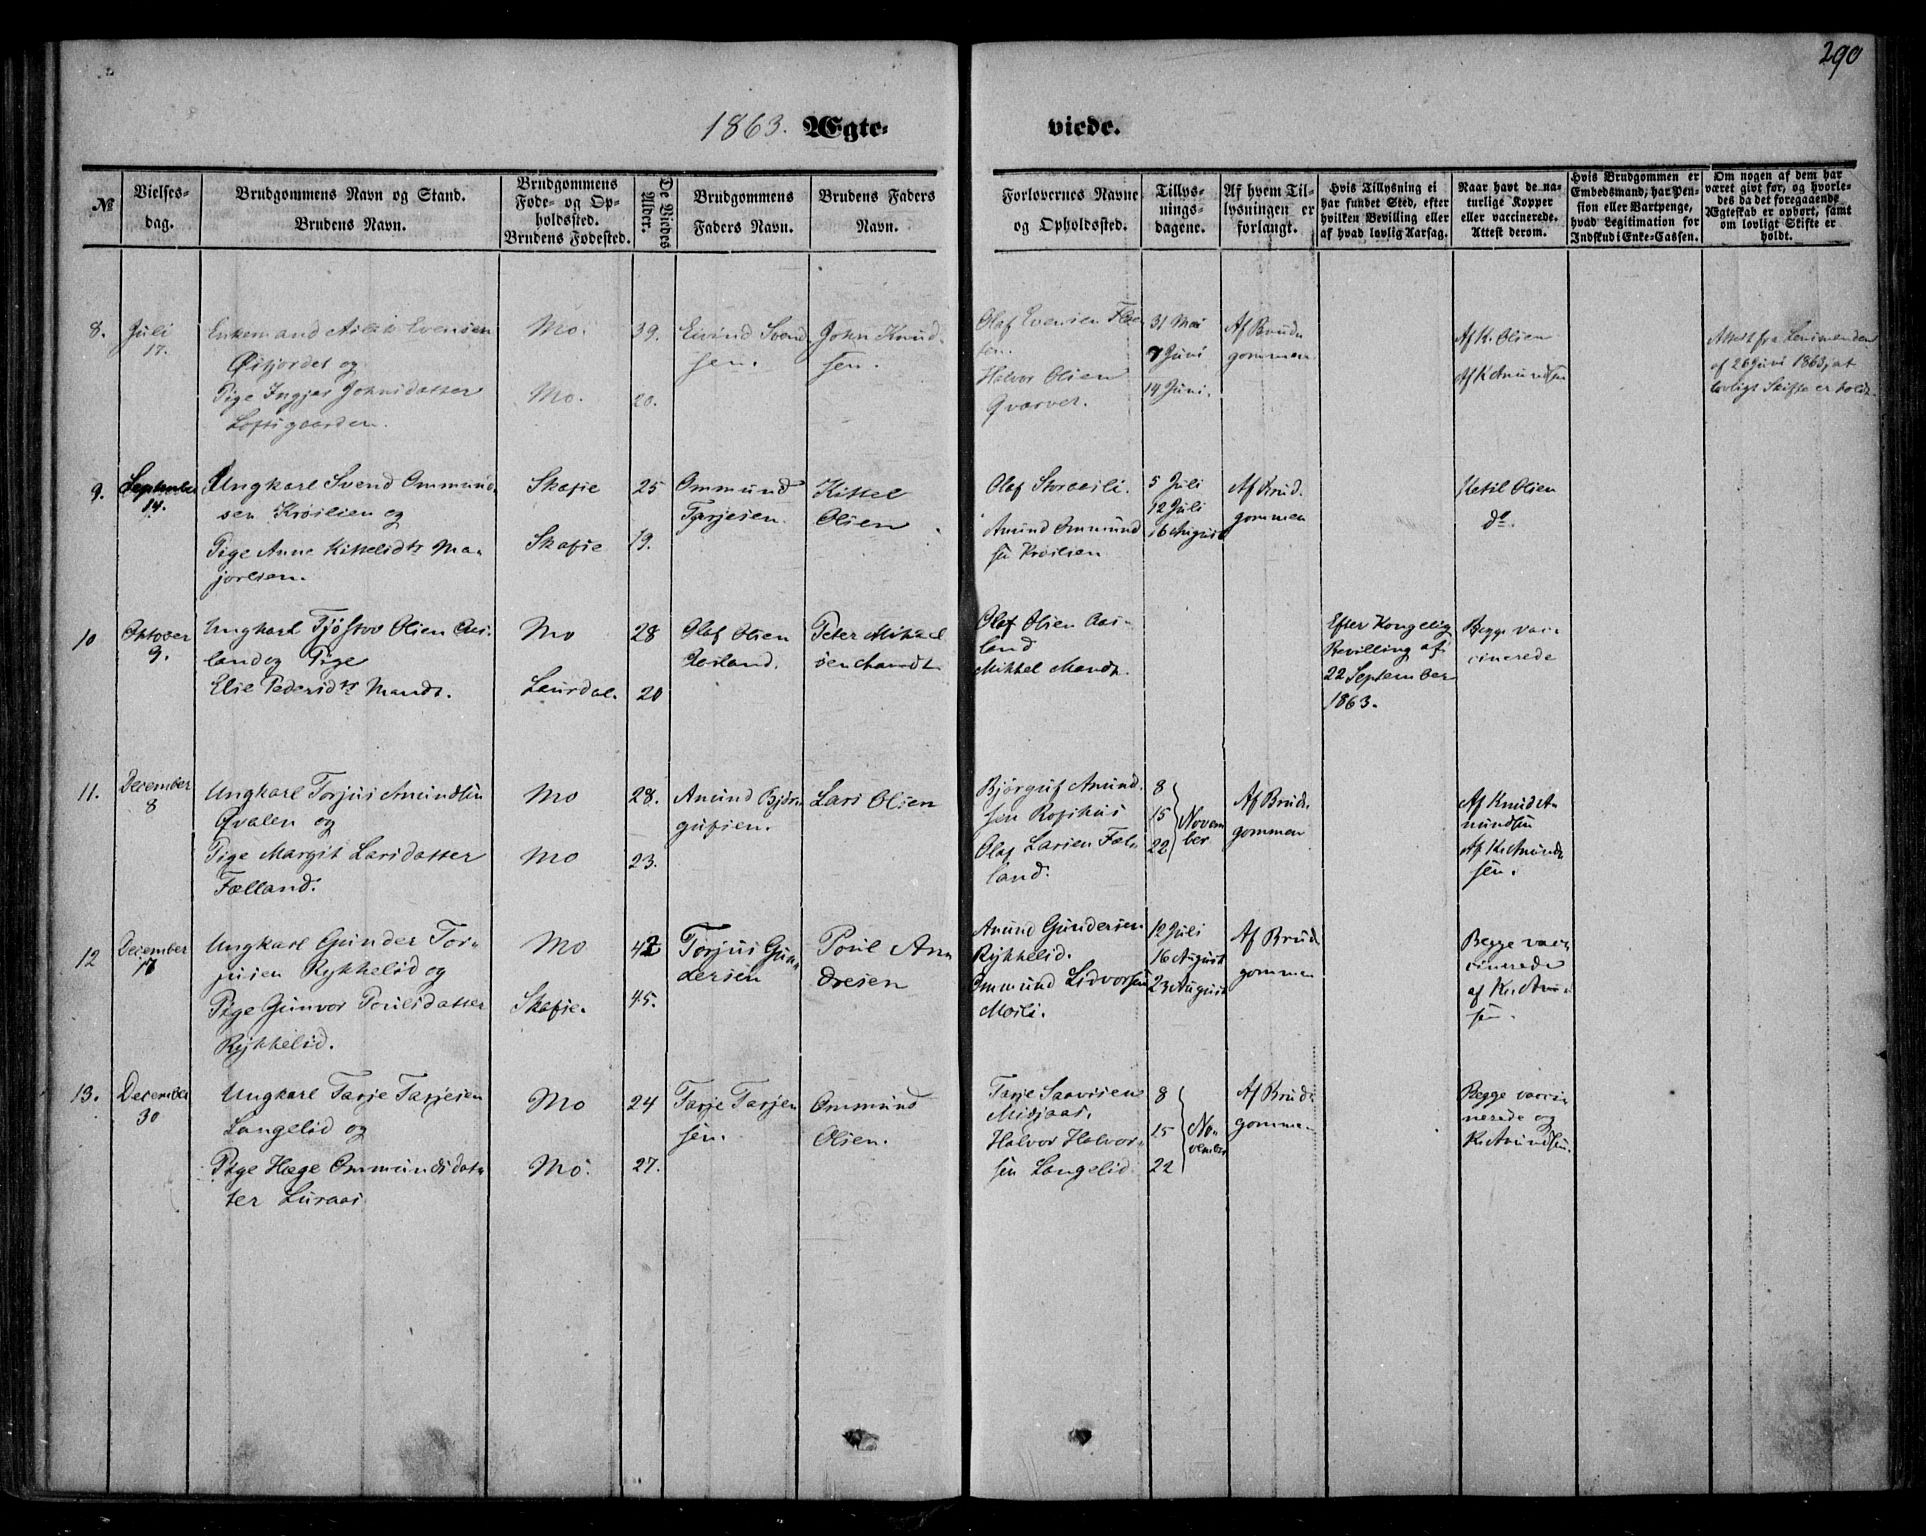 290
1863. Ægte-
viede.
№
Vielses-
dag.
Brudgommens Navn og Stand.
Brudens Navn.
Brudgommens
Føde- og Op-
holdssted.
Brudens Fødested.
De Viedes
Alder.
Brudgommens
Faders Navn.
Brudens Faders
Navn.
Forlovernes Navne
og Opholdssted.
Tillys-
nings-
dagene.
Af hvem Til-
lysningen er
forlangt.
Hvis Tillysning ei
har fundet Sted, efter
hvilken Bevilling eller
af hvad lovlig Aarsag.
Naar havt de na-
turlige Kopper
eller vaccinerede.
Attest derom.
Hvis Brudgommen er
Embedsmand, har Pen-
sion eller Vartpenge,
hvad Legitimation for
Indskud i Enke-Cassen.
Om nogen af dem har
været givt før, og hvorle-
des da det foregaaende
Ægteskab er ophørt, samt
om lovligt Skifte er
holdt.
8.
Juli
17.
Enkemand Aslak Evensen
Øifjordet og
Pige Ingjer Johnsdatter
Loftsgaarden.
Mo.
Mo.
39.
20.
Eivind Svend-
sen.
John Knud-
sen.
Olaf Evensen
sen.
Halvor Olsen
Qvarver.
31 Mai
7 Juni
14 Juni.
Af Brud-
gommen
Af K. Olsen
Af K. Amundsen
Attest fra Lensmanden
af 26 Juni 1863, at
lovligt Skifte er holdt.
9.
September
14.
Ungkarl Svend Ommund-
sen Krosilien og
Pige Anne Kittelsdtr Ma-
jorlien.
Skafse
Skafse
25
19.
Ommund
Tarjesen.
Kittel
Olsen
Olaf Skraasili.
Amund Ommund
sen Krosilien
5 Juli
12 Juli
16 August
Af Brud-
gommen
Ketil Olsen
do.
10
Oktober
9.
Ungkarl Tjøstov Olsen Aas-
land og Pige
Elise Pedersdtr Mandt.
Mo
Laurdal.
28
20
Olaf Olsen
Aasland.
Peter Mikael
sen Mandt
Olaf Olsen Aas-
land
Mikkel Mandt.
Efter Kongelig
Bevilling af
22 September
1863.
Begge vac-
cinerede
11.
December
8
Ungkarl Torjus Amundsen
Qvalen og
Pige Margit Larsdatter
Fælland.
Mo
Mo
28.
23.
Amund Bjørn
gufsen.
Lars Olsen
Bjørguf Amund-
sen Rofshus
Olaf Larsen Fæl-
land.
8
15
22
Novem
ber
Af Brud-
gommen
Af Knud A-
mundsen
Af K. Amund-
sen.
12
December
17
Ungkarl Gunder Tor-
jusen Rykkelid og
Pige Gunvor Poulsdatter
Rykkelid.
Mo
Skafse.
42
45.
Torjus Gun-
dersen
Poul An-
dresen
Amund Gundersen
Rykkelid.
Ommund Lidvorsen
Mosli.
12 Juli
16 August
23 August
Af Brud-
gommen
Begge vac-
cinerede
af K. Amund
sen.
13.
December
30
Ungkarl Tarje Tarjesen
Langelid og
Pige Hæge Ommundsdat-
ter Luraas
Mo
Mo.
24
27.
Tarje Tarje-
sen.
Ommund
Olsen.
Tarje Saavesen
Midjaas.
Halvor Halvor-
sen Langelid.
8
15
22
No-
vember
Af Brud-
gommen
Begge vacci-
nerede og
K. Amundsen.